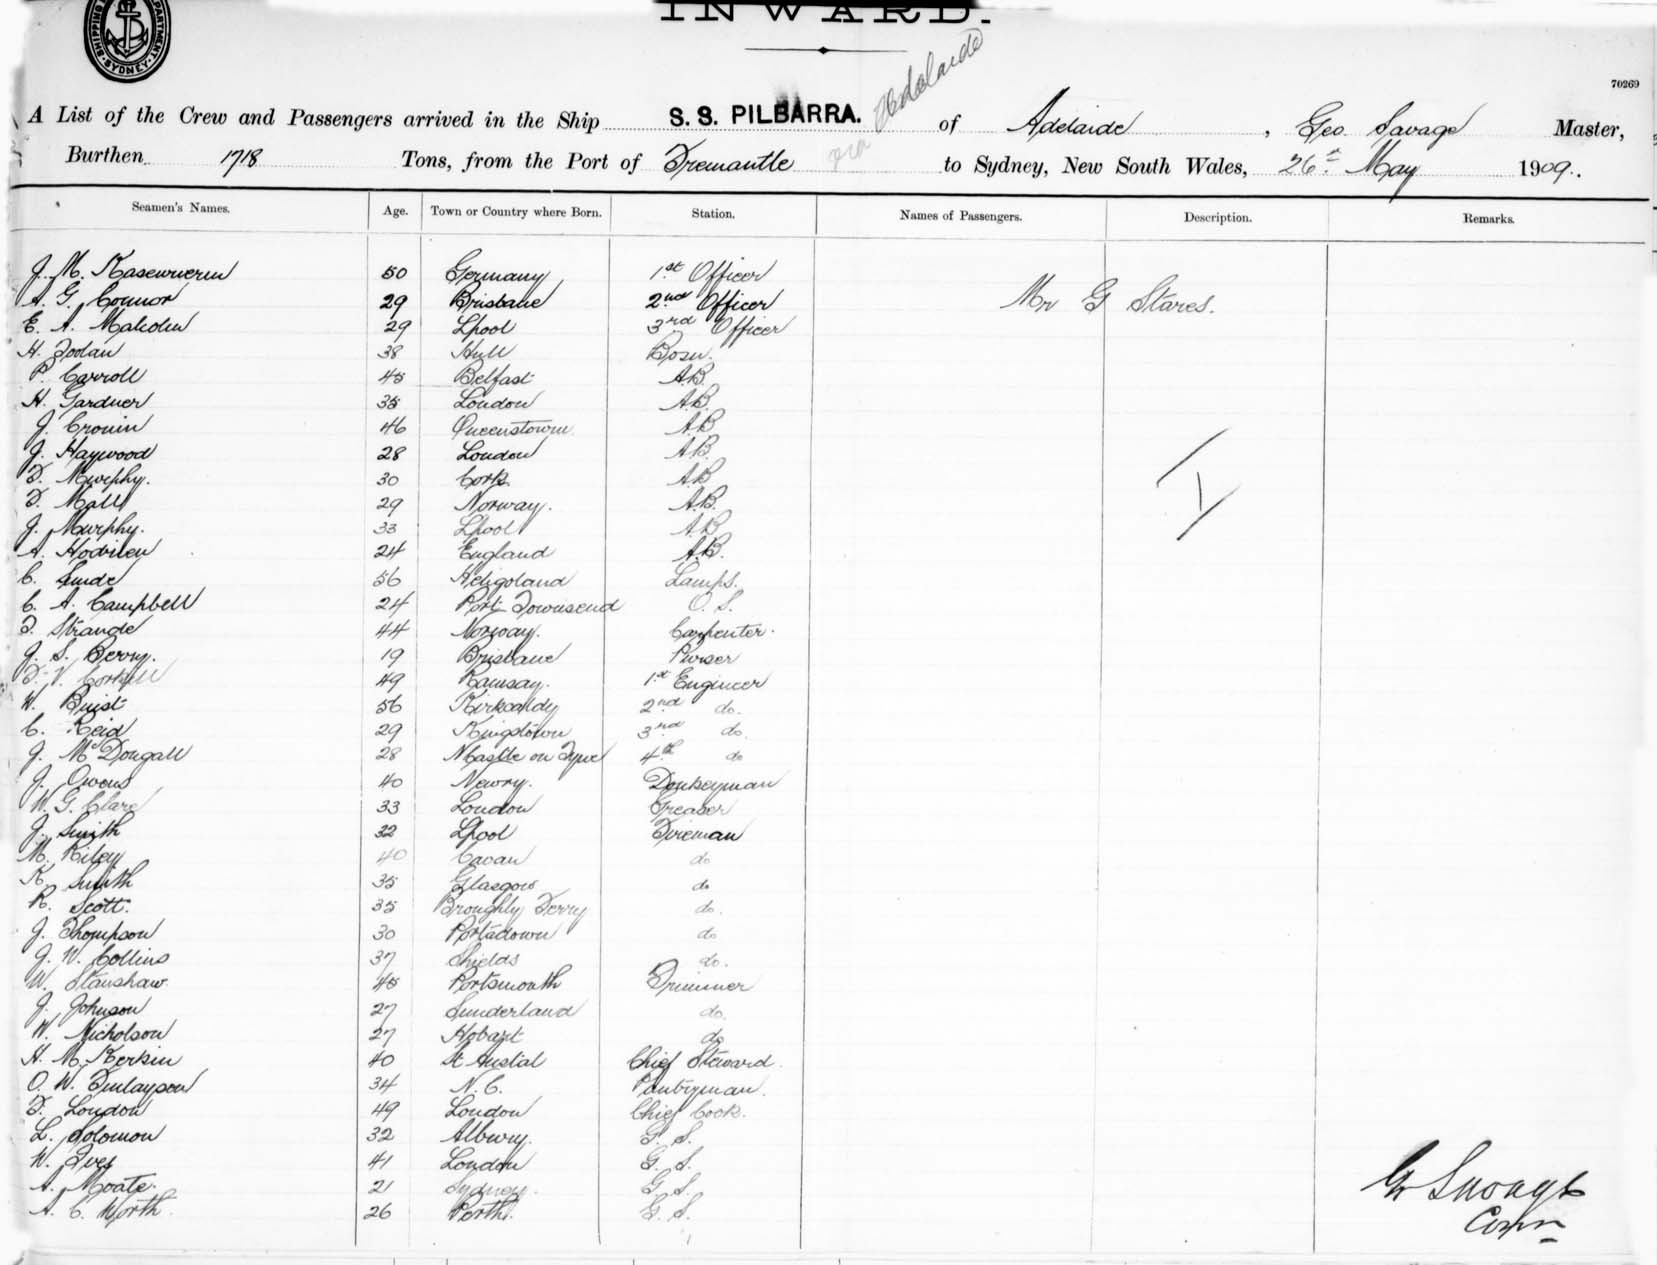 SHIPPING DEPARTMENT. SYDNEY.
INWARD.
70269
via Adelaide
A List of the Crew and Passengers arrived in the Ship S. S. PILBARRA. of Adelaide, Geo. Savage Master,
Burthen 1718 Tons, from the Port of Fremantle to Sydney, New South Wales, 26th May 1909.
Seamen's Names. Age. Town or Country where Born. Station. Names of Passengers. Description. Remarks.
J. M. 50 Germany 1st Officer
A. G. Connor 29 Brisbane 2nd Officer Mr G Stares.
E. A. Malcolm 29 Lpool 3rd Officer
H. 38 Hull Bosn.
P. Carroll 45 Belfast A.B.
H. Gardner 35 London A.B.
J. Cronin 46 Queenstown A.B
J. Haywood 28 London A.B.
T. Murphy. 30 Cork A.B
T. 29 Norway. A.B.
J. Murphy. 33 Lpool A.B
A. 24 England A.B.
C. Linde 56 Heligoland Lamps.
C. A. Campbell 24 Port Townsend O. S.
T. Strande 44 Norway. Carpenter.
J. S. Berry. 19 Brisbane Purser
49 Ramsay. 1st Engineer
W. Buist 56 Kirkcaldy 2nd do.
C. Reid 29 Kingstown 3rd do.
J. McDougall 28 NCastle on Tyne 4th do
J. Owens 40 Newry. Donkeyman
W. G. Clare 33 London Greaser
J. Smith 32 Lpool Fireman
M. Riley 40 Cavan do
K. Smith 35 Glasgow do
R. Scott. 35 Broughty Ferry do.
J. Thompson 30 Portadown do
J. W. Collins 37 Shields do.
W. Stanshaw. 45 Portsmouth Trimmer
J. Johnson 27 Sunderland do.
W. Nicholson 27 Hobart do
H. M. Kerkin 40 St Austal Chief Steward.
O. W. Finlayson 34 N. C. Pantryman.
T. London 49 London Chief Cook.
L. Solomon 32 Albury. G. S.
W. Ives 41 London G. S.
A. Moate. 21 Sydney. G. S.
A. C. Worth. 26 Perth. G. S.
G Savage